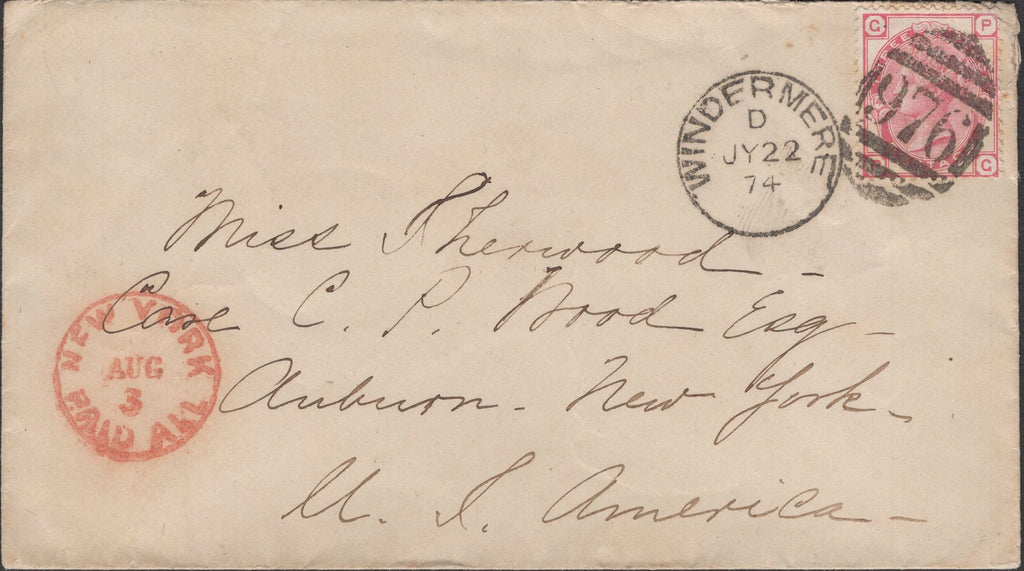 G P
976
G
WINDERMERE
D
JY 22
74
Miss Sherwood -
Care C. P. Wood Esq -
Auburn - New York -
U. S. America -
NEW YORK
AUG
3
PAID ALL